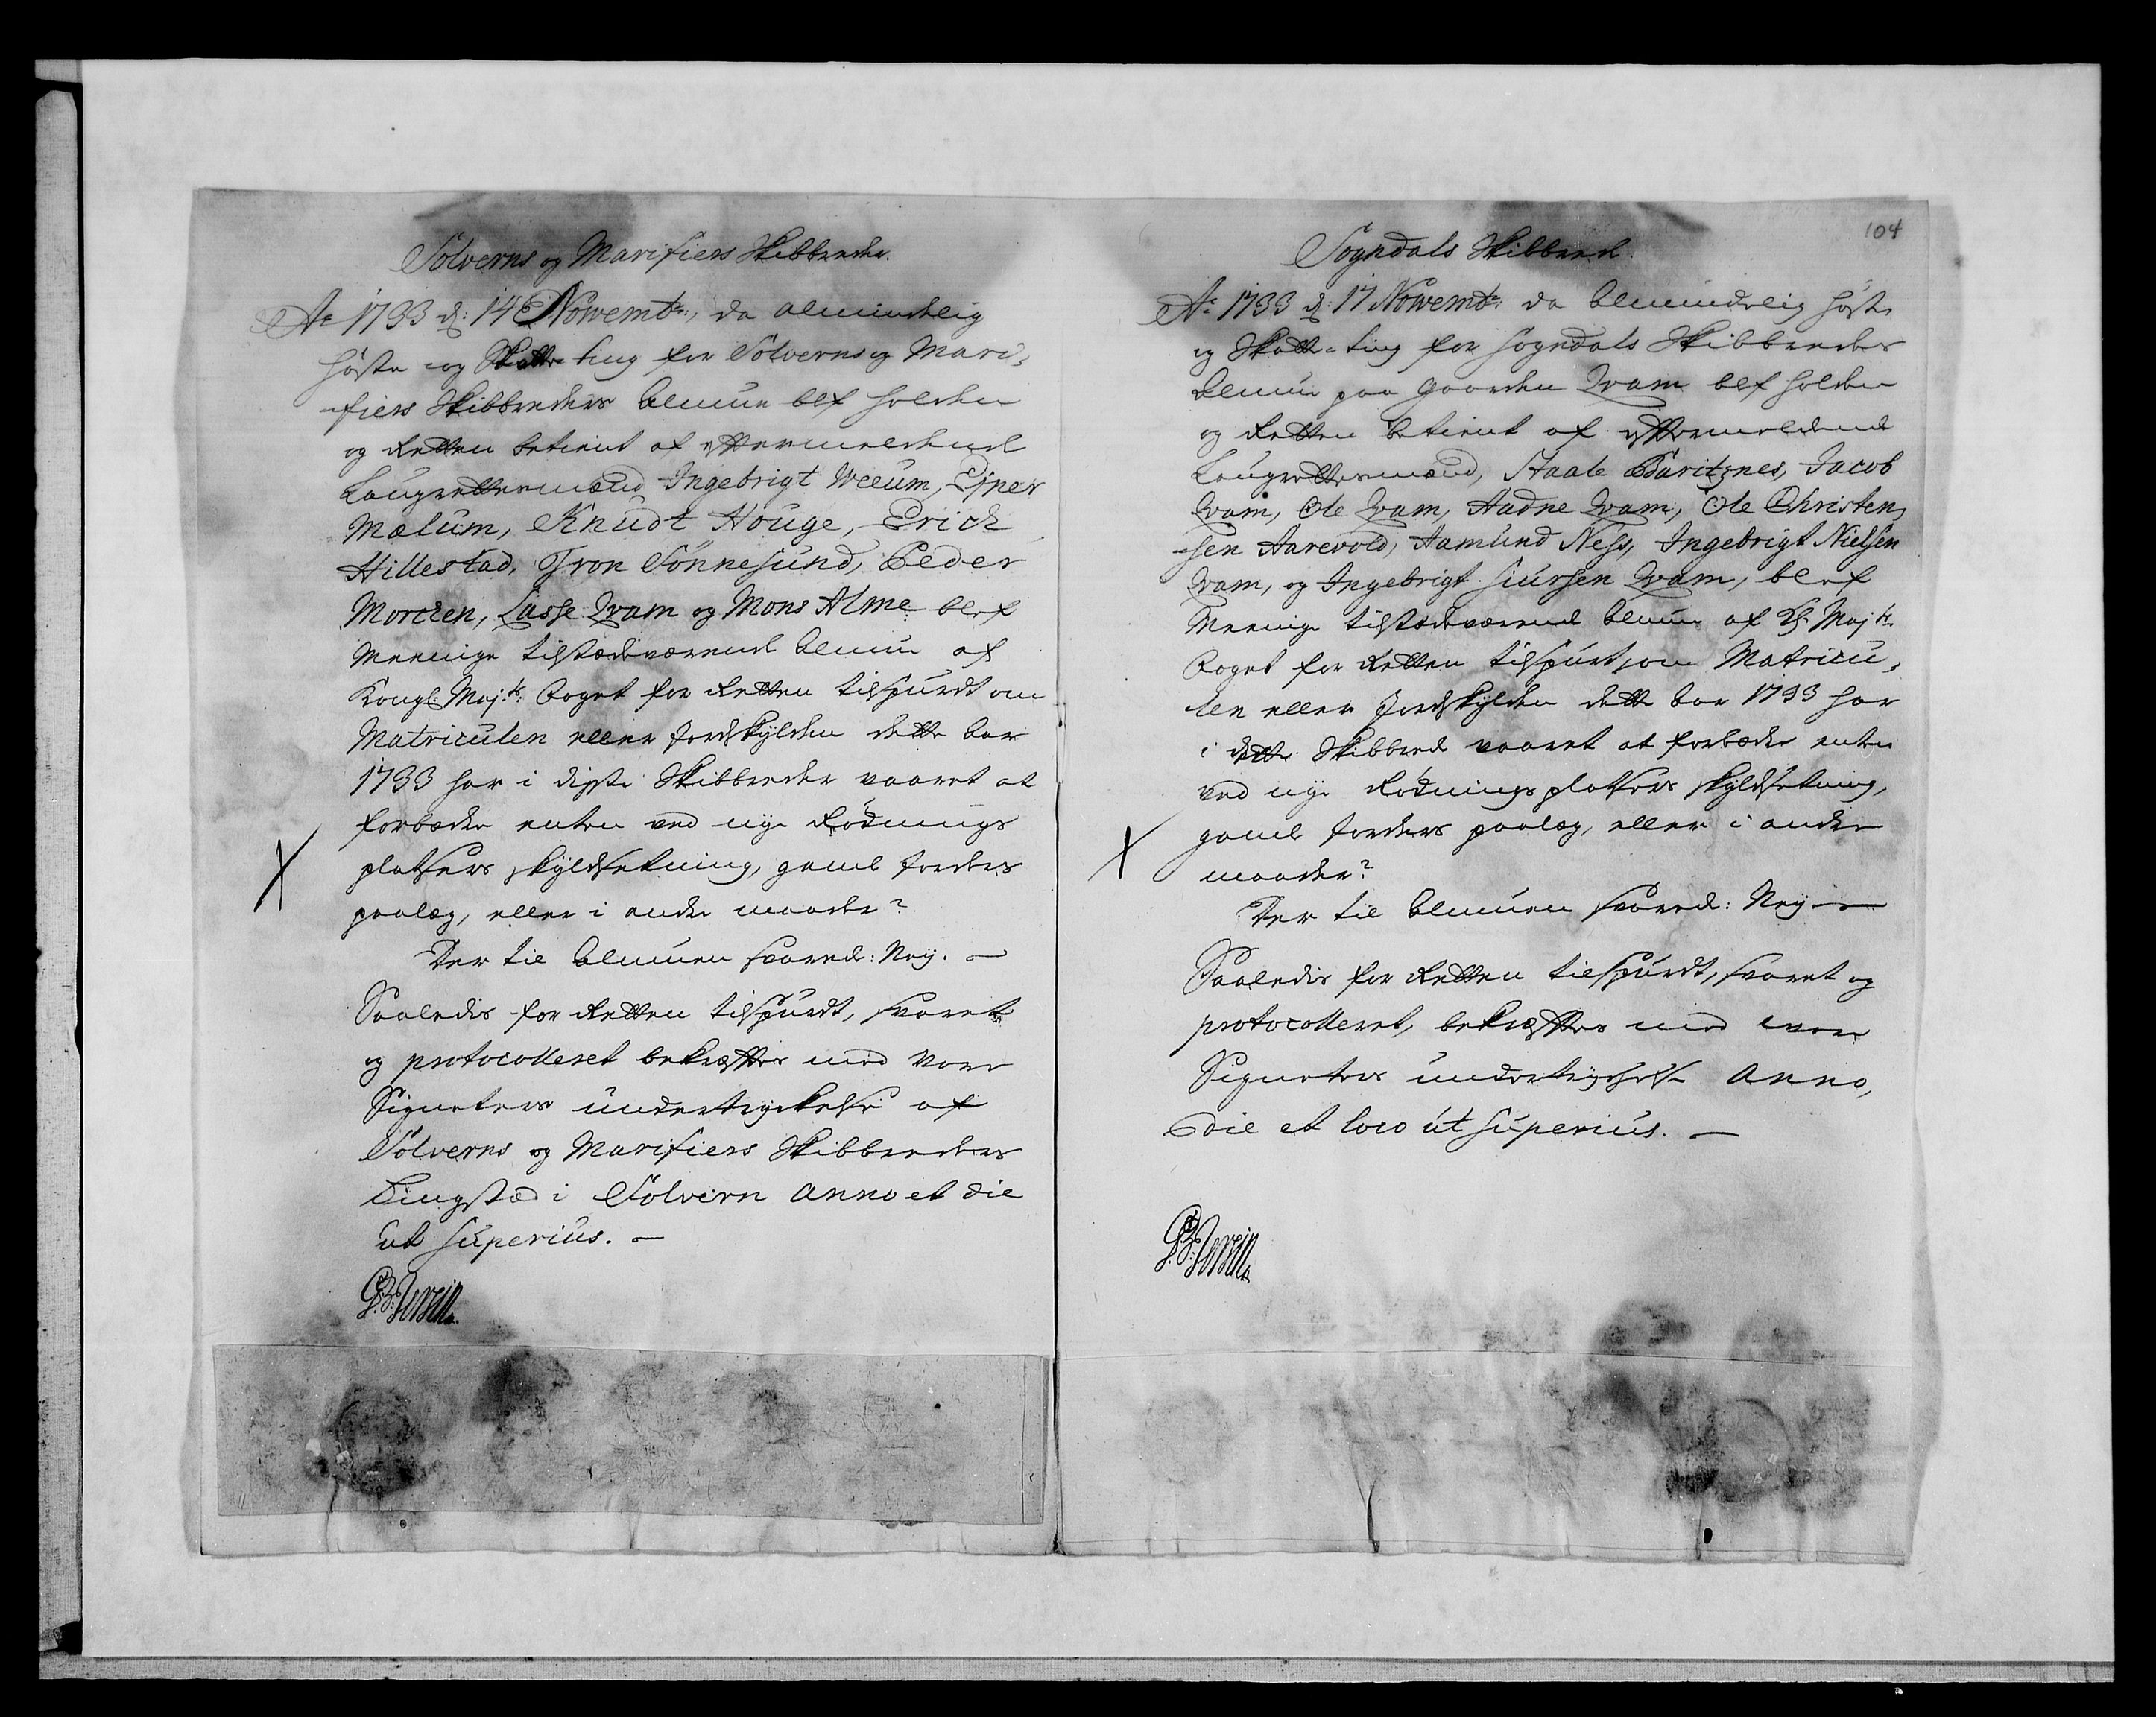 Solverns og Marifiers Skibbreder.
Ao 1733 d: 14 Novembr:, da almindelig
høste- og Skatte-ting for Solverns og Mari-
-fiers Skibbreders Almue blef holden
og Retten betient af eftermeldende
Laugrettesmænd Ingebrigt Weeum, Esper
Mælum, Knudt Houge, Erich
Hillestad, Tron Sönnesund, Peder
Morcken, Lasse Qvam og Mons Alme blef
Meenige tilstædeværende Almue af
Kongl: Maj.ts: Foget for Retten tilspurdt om
Matriculen eller Jordskylden dette Aar
1733 har i disse Skibbreder vaaret at
forbædre enten ved nye Rödnings
platsers skyldsetning, gamle Jorders
paalæg, eller i andre maader?
Der til Almuen svarede: Ney. —
Saaledis for Retten tilspurdt, svaret
og protocolleret bekræfter med vore
Signeters undertryckelse af
Solverns og Marifiers Skibbreders
Tingstæd i Solvern Anno et die
ut superius. —
104
Sogndals Skibbrede.
Ao 1733 d: 17 Novembr: da Almindelig høste
og Skatte-ting for Sogndals Skibbredes
Almue paa Gaarden Qvam blef holden
og Retten betient af eftermeldende
Laugrettesmænd, Staale Buritznes, Jacob
Qvam, Ole Qvam, Audne Qvam, Ole Christen-
-sen Aarevold, Aamund Ness, Ingebrigt Nielsen
Qvam, og Ingebrigt Siursen Qvam, blef
Meenige tilstædeværende Almue af Kl: Maj.ts
Foget for Retten tilspurt, om Matricu-
len eller Jordskylden dette Aar 1733 har
i dette Skibbrede vaaret at forbædre enten
ved nye Rødnings platsers skyldsetning,
gamle Jorders paalæg, eller i andre
maader?
Der til Almuen svarede: Ney —
Saaledis for Retten tilspurdt, svaret og
protocolleret, bekræfter med vore
Signeters undertryckelse Anno,
die et loco ut superius. —